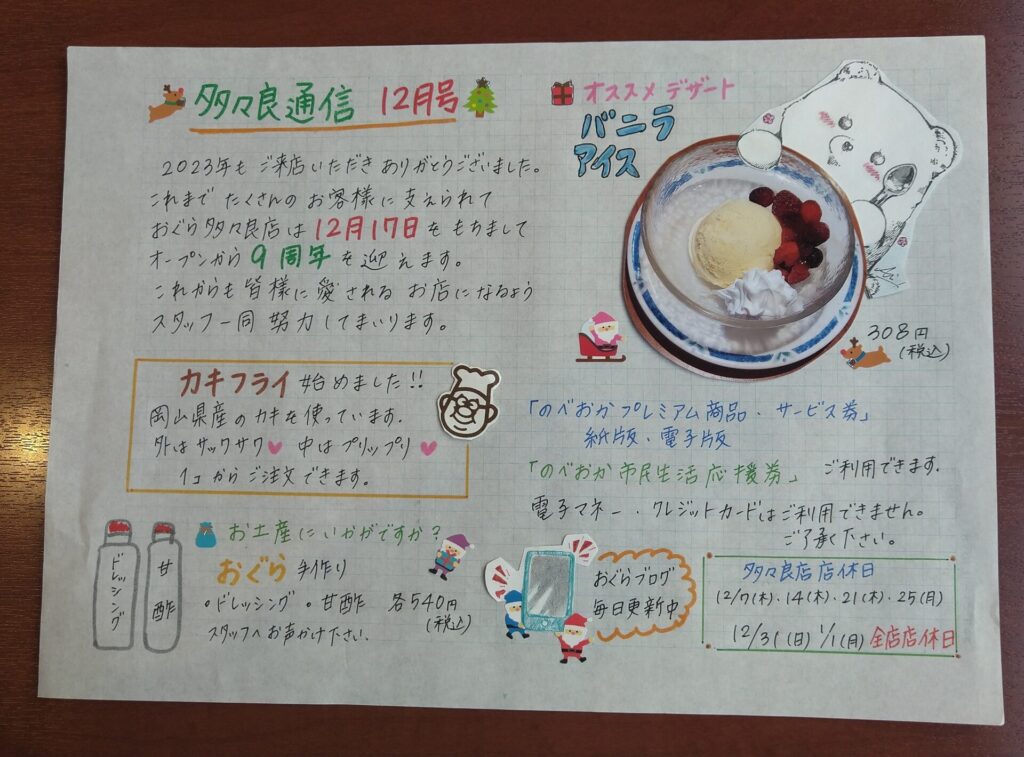 多々良通信 12月号
2023年も ご来店いただき ありがとうございました。
これまで たくさんの お客様に 支えられて
おぐら多々良店は 12月17日を もちまして
オープンから 9周年を 迎えます。
これからも 皆様に 愛される お店になるよう
スタッフ一同 努力してまいります。
カキフライ 始めました!!
岡山県産のカキを使っています。
外はサックサク 中はプリップリ
1コからご注文できます。
お土産にいかがですか?
おぐら 手作り
・ドレッシング ・甘酢 各540円
(税込)
スタッフへお声かけ下さい。
ドレッシング
甘酢
オススメ デザート
バニラ
アイス
308円
(税込)
「のべおかプレミアム商品・サービス券」
紙版・電子版
「のべおか市民生活応援券」 ご利用できます.
電子マネー・クレジットカードはご利用できません。
ご了承ください。
おぐらブログ
毎日更新中
多々良店店休日
12/7(木)・14(木)・21(木)・25(月)
12/31(日) 1/1(月) 全店店休日